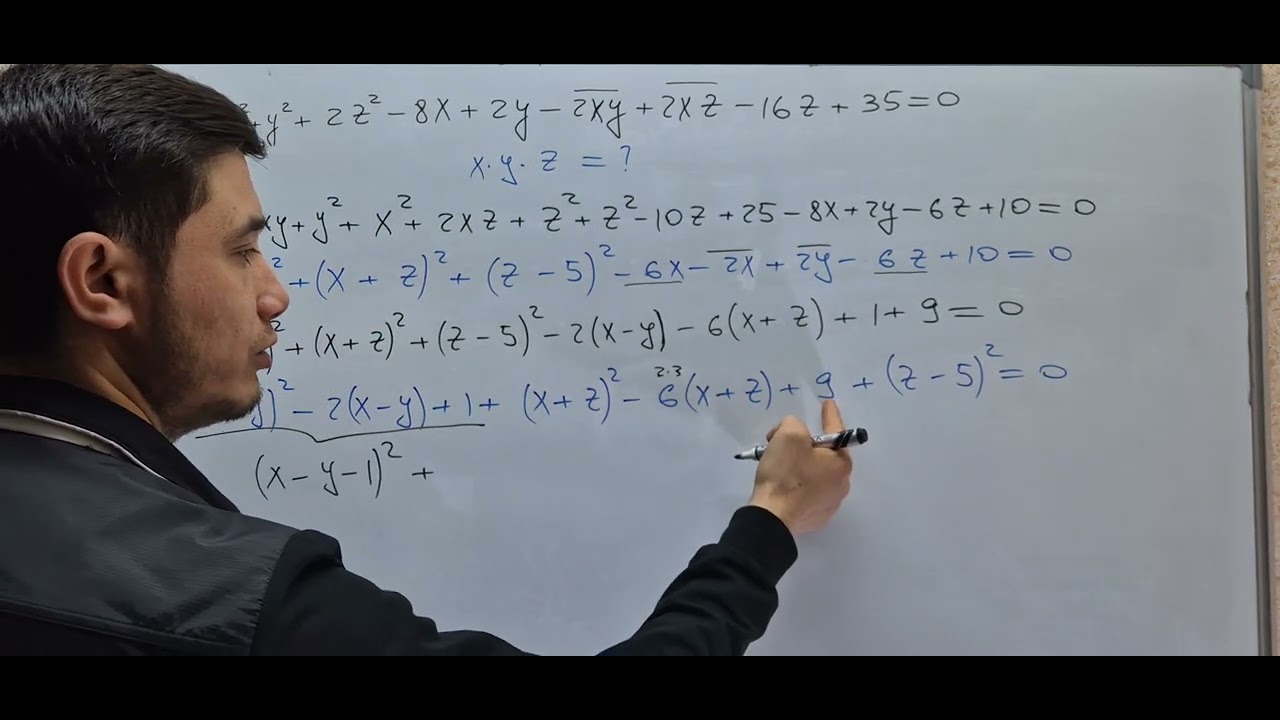 ²+y²+2z²-8x+2y-2xy+2xz-16z+35=0
x·y·z=?
xy+y²+x²+2xz+z²+z²-10z+25-8x+2y-6z+10=0
²+(x+z)²+(z-5)²-6x-2x+2y-6z+10=0
)²+(x+z)²+(z-5)²-2(x-y)-6(x+z)+1+9=0
2·3
y)²-2(x-y)+1+(x+z)²-6(x+z)+9+(z-5)²=0
(x-y-1)²+